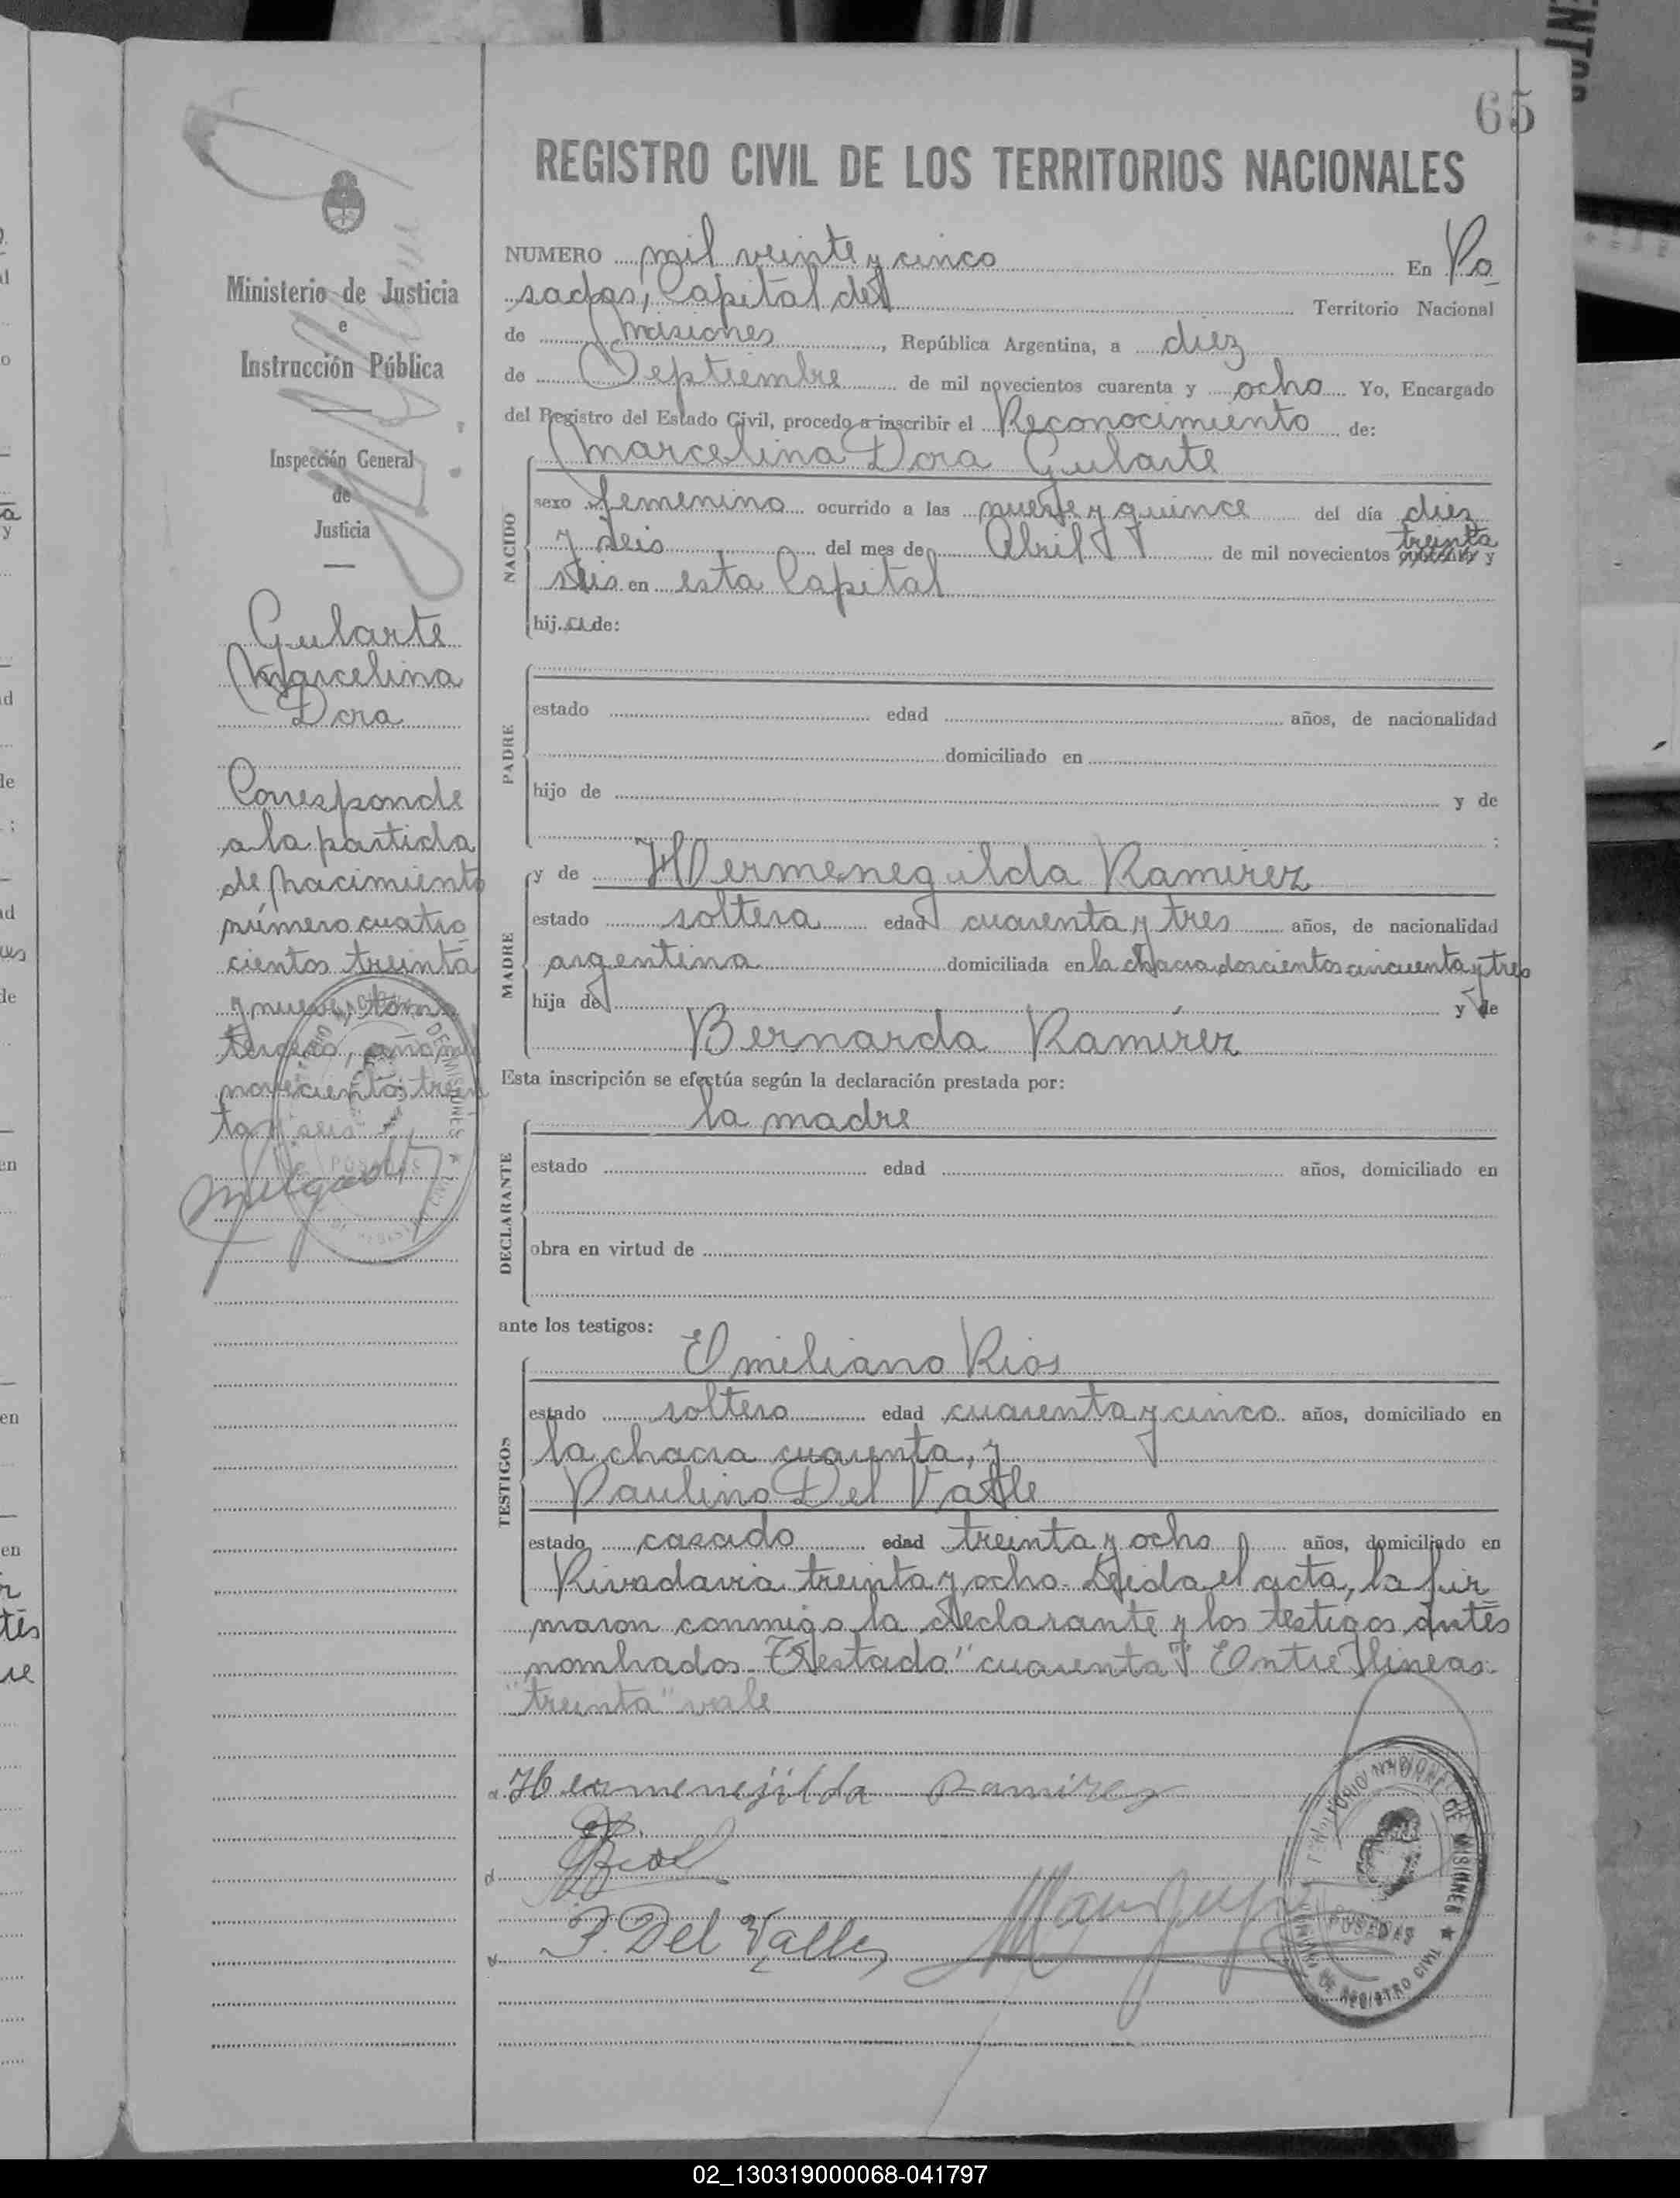 65
REGISTRO CIVIL DE LOS TERRITORIOS NACIONALES
Ministerio de Justicia
e
Instrucción Pública
Inspección General
de
Justicia
Gularte
Marcelina
Dora
Corresponde
a la partida
de nacimiento
número cuatro
cientos treinta
y nueve, tomo
tercero, año mil
novecientos trein
ta y seis
NUMERO mil veinte y cinco En Po
sadas, Capital del Territorio Nacional
de Misiones, República Argentina, a diez
de Septiembre de mil novecientos cuarenta y ocho Yo, Encargado
del Registro del Estado Civil, procedo a inscribir el Reconocimiento de:
Marcelina Dora Gularte
NACIDO
sexo femenino ocurrido a las nueve y quince del día diez
y seis del mes de Abril de mil novecientos treinta y
seis en esta Capital
hija de:
PADRE
estado edad años, de nacionalidad
domiciliado en
hijo de y de
;
MADRE
y de Hermenegilda Ramirez
estado soltera edad cuarenta y tres años, de nacionalidad
argentina domiciliada en la chacra doscientos cincuenta y tres
hija de y de
Bernarda Ramírez
Esta inscripción se efectúa según la declaración prestada por:
la madre
DECLARANTE
estado edad años, domiciliado en
obra en virtud de
ante los testigos:
TESTIGOS
Emiliano Rios
estado soltero edad cuarenta y cinco años, domiciliado en
la chacra cuarenta, y
Paulino Del Valle
estado casado edad treinta y ocho años, domiciliado en
Rivadavia treinta y ocho. Leida el acta, la fir
maron conmigo la declarante y los testigos antes
nombrados. Testado "cuarenta". Entre lineas:
"treinta" vale
Hermenejilda Ramirez
Rios
P. Del Valle
TERRITORIO NACIONAL DE MISIONES
POSADAS
REGISTRO CIVIL
02_130319000068-041797